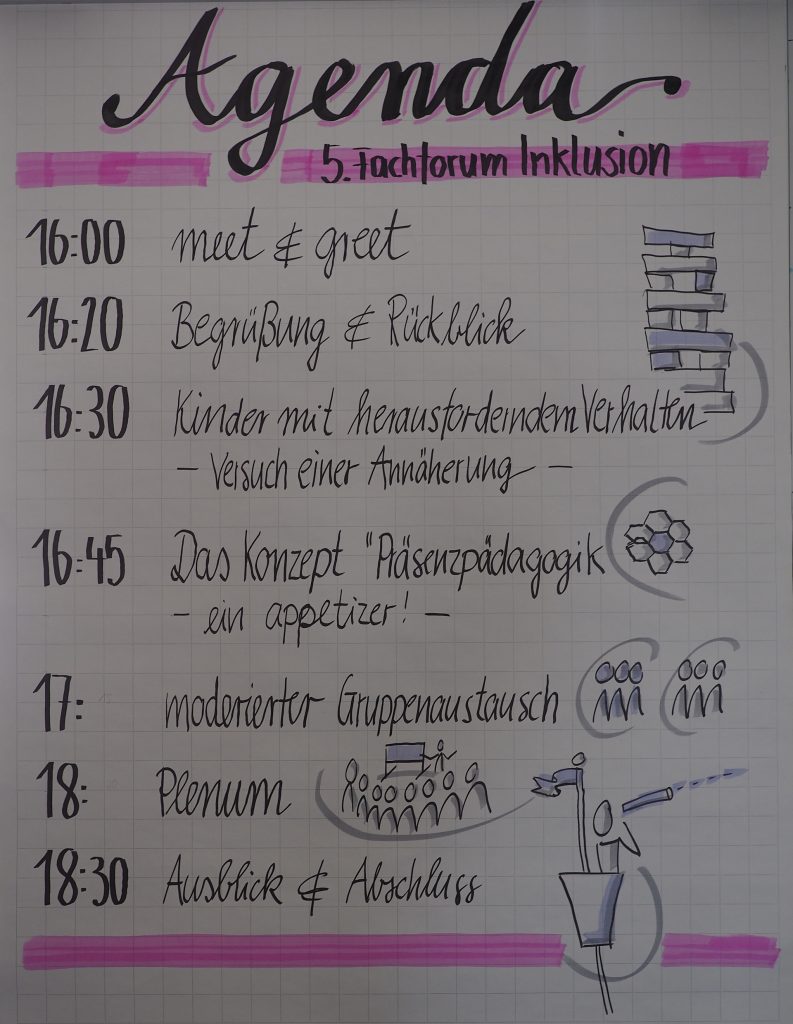 Agenda
5. Fachforum Inklusion
16:00 meet & greet
16:20 Begrüßung & Rückblick
16:30 Kinder mit herausforderndem Verhalten
– Versuch einer Annäherung –
16:45 Das Konzept "Präsenzpädagogik
– ein appetizer! –
17: moderierter Gruppenaustausch
18: Plenum
18:30 Ausblick & Abschluss